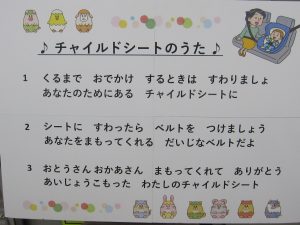 ♪ チャイルドシートのうた ♪
1 くるまで おでかけ するときは すわりましょ
あなたのためにある チャイルドシートに
2 シートに すわったら ベルトを つけましょう
あなたをまもってくれる だいじなベルトだよ
3 おとうさん おかあさん まもってくれて ありがとう
あいじょうこもった わたしのチャイルドシート